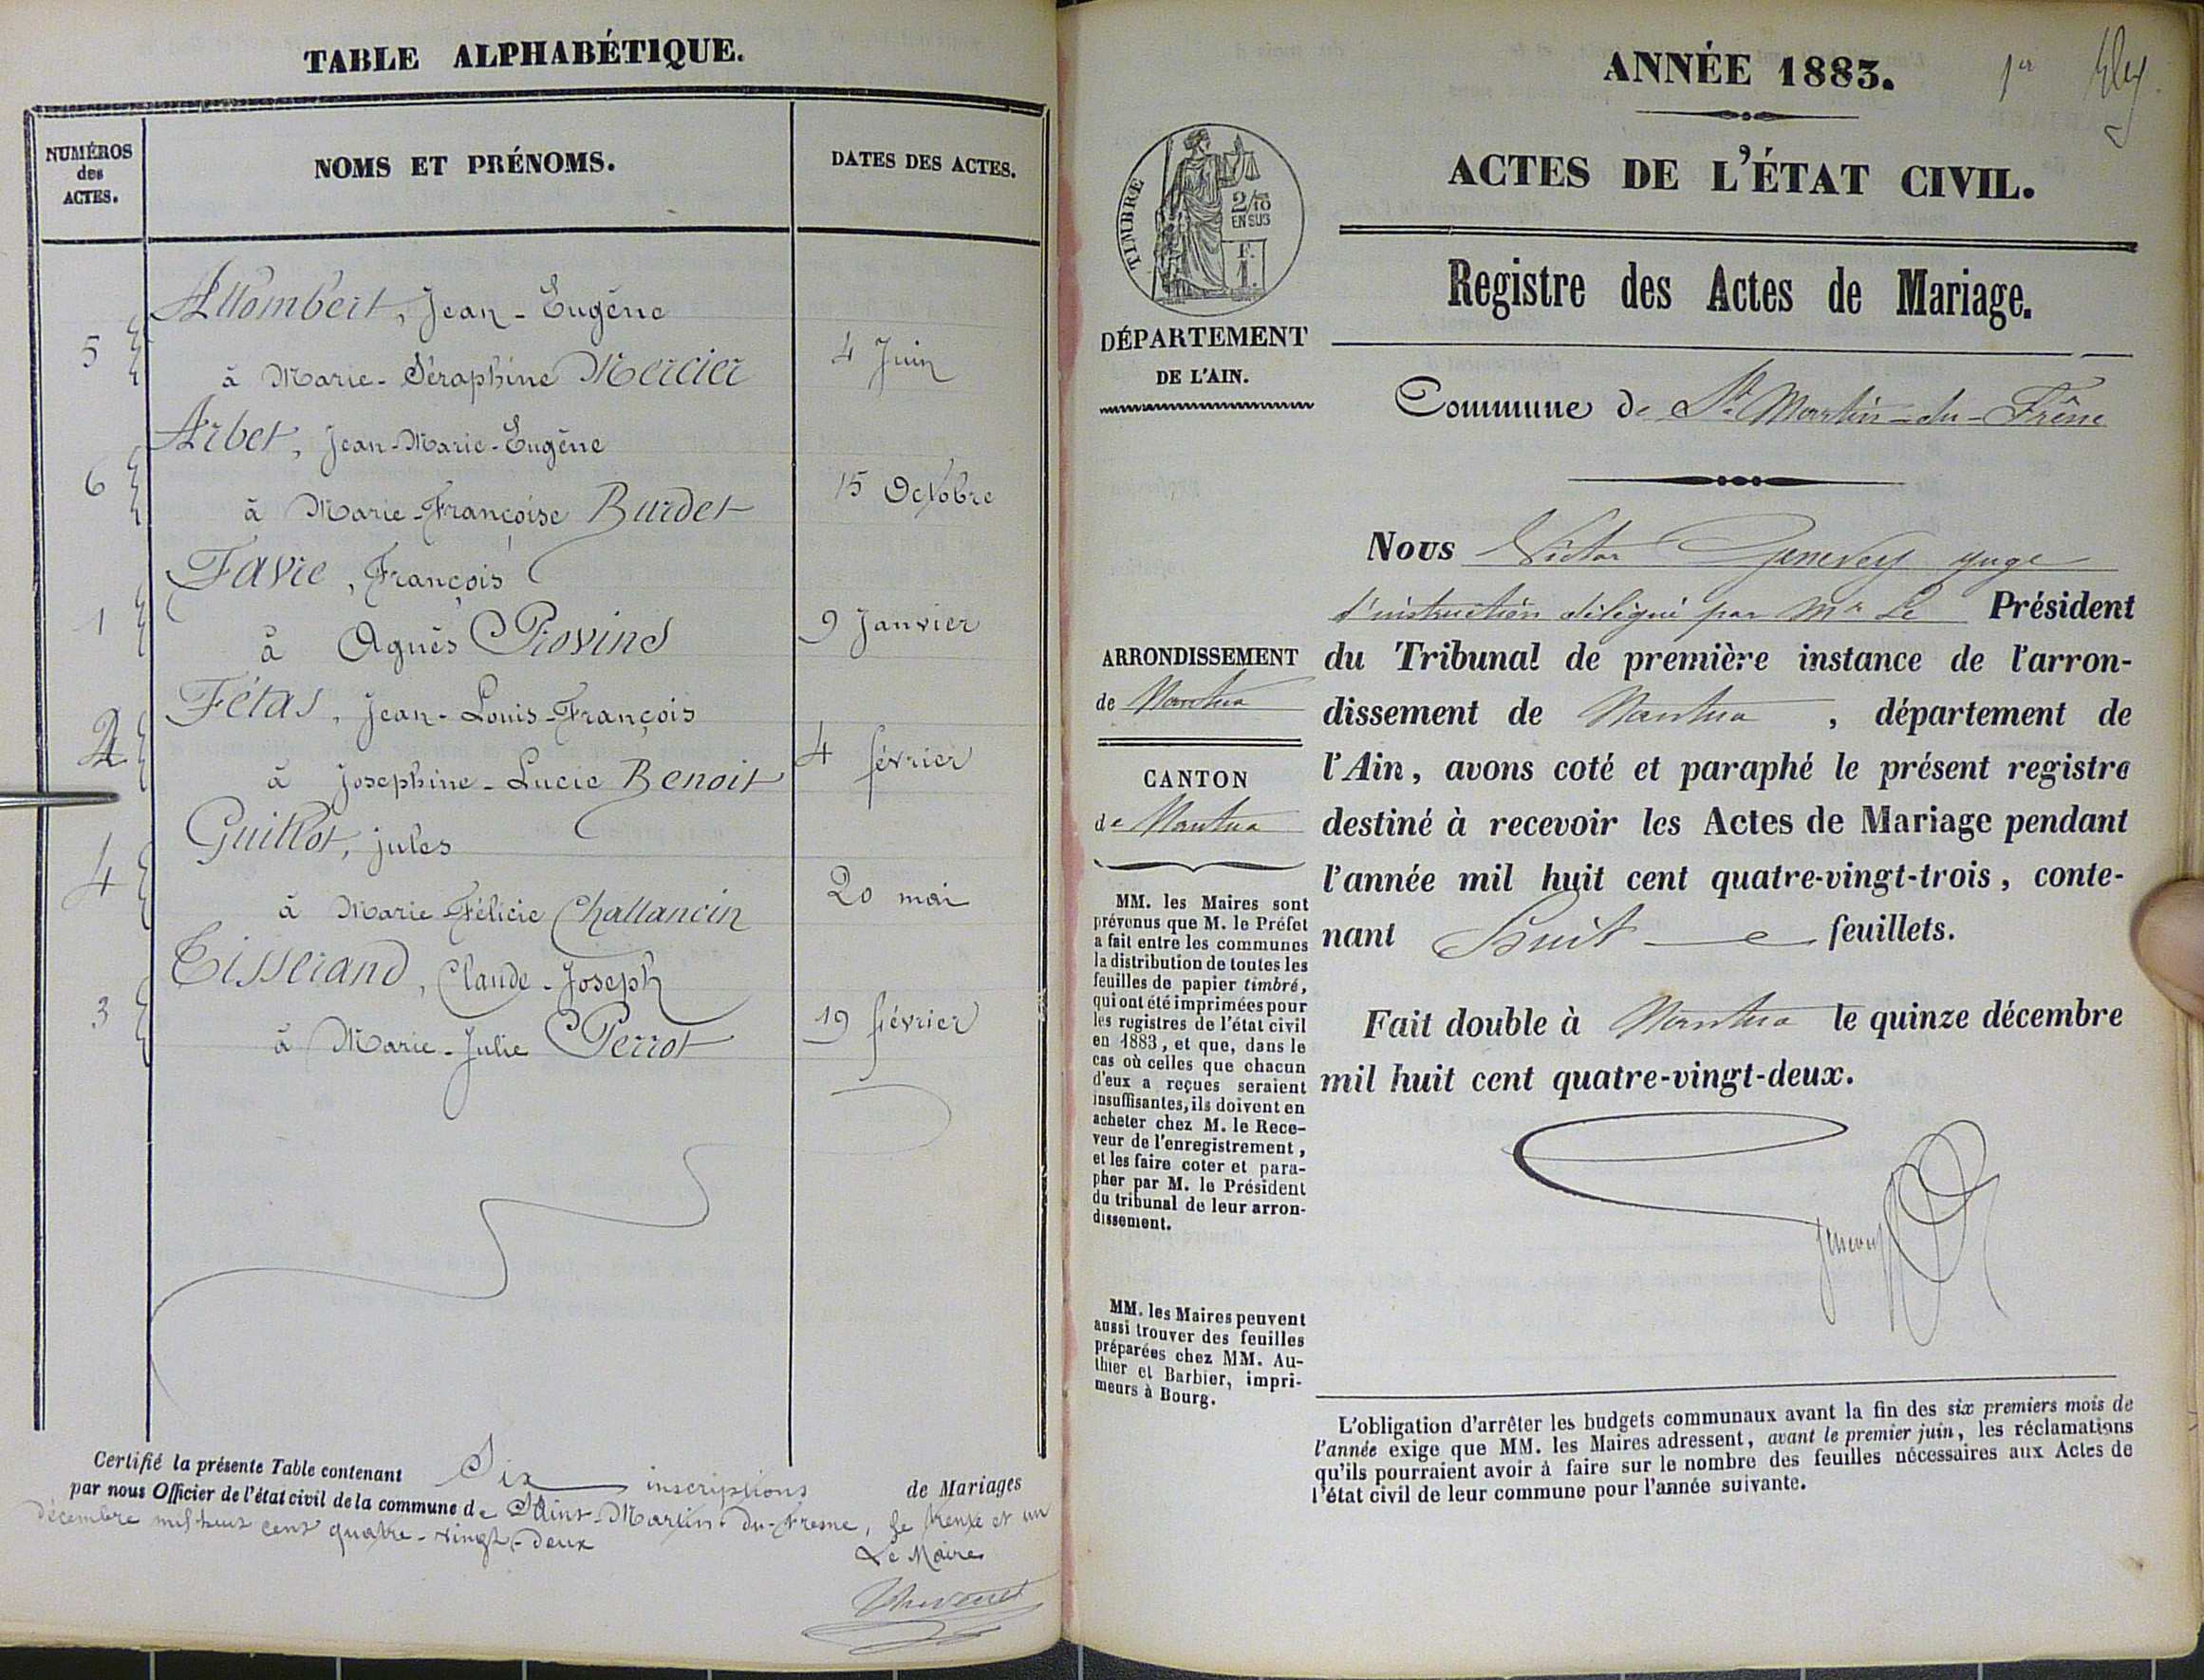 TABLE ALPHABÉTIQUE.
NUMÉROS
des
ACTES.
NOMS ET PRÉNOMS.
DATES DES ACTES.
Allombert, Jean-Eugène
5
à Marie-Séraphine Mercier
4 Juin
Arbet, Jean-Marie-Eugène
6
à Marie-Françoise Burdet
15 Octobre
Favre, François
1
à Agnès Provins
9 Janvier
Fétas, Jean-Louis-François
2
à Josephine-Lucie Benoit
4 février
Guillot, Jules
4
à Marie Félicie Challancin
20 mai
Tisserand, Claude-Joseph
3
à Marie-Julie Perrot
19 février
Certifié la présente Table contenant Six inscriptions de Mariages
par nous Officier de l'état civil de la commune de Saint-Martin-du-Fresne, le trente et un
décembre mil huit cent quatre-vingt-deux
Le Maire
ANNÉE 1883.
1er
TIMBRE
2/10
EN SUS
F.
1.
ACTES DE L'ÉTAT CIVIL.
Registre des Actes de Mariage.
DÉPARTEMENT
DE L'AIN.
Commune de St Martin-du-Frêne
Nous Victor Genevey juge
d'instruction délégué par Mr Le Président
du Tribunal de première instance de l'arron-
dissement de Nantua, département de
l'Ain, avons coté et paraphé le présent registre
destiné à recevoir les Actes de Mariage pendant
l'année mil huit cent quatre-vingt-trois, conte-
nant huit feuillets.
Fait double à Nantua le quinze décembre
mil huit cent quatre-vingt-deux.
Genevey
ARRONDISSEMENT
de Nantua
CANTON
de Nantua
MM. les Maires sont
prévenus que M. le Préfet
a fait entre les communes
la distribution de toutes les
feuilles de papier timbré,
qui ont été imprimées pour
les registres de l'état civil
en 1883, et que, dans le
cas où celles que chacun
d'eux a reçues seraient
insuffisantes, ils doivent en
acheter chez M. le Rece-
veur de l'enregistrement,
et les faire coter et para-
pher par M. le Président
du tribunal de leur arron-
dissement.
MM. les Maires peuvent
aussi trouver des feuilles
préparées chez MM. Au-
thier et Barbier, impri-
meurs à Bourg.
L'obligation d'arrêter les budgets communaux avant la fin des six premiers mois de
l'année exige que MM. les Maires adressent, avant le premier juin, les réclamations
qu'ils pourraient avoir à faire sur le nombre des feuilles nécessaires aux Actes de
l'état civil de leur commune pour l'année suivante.